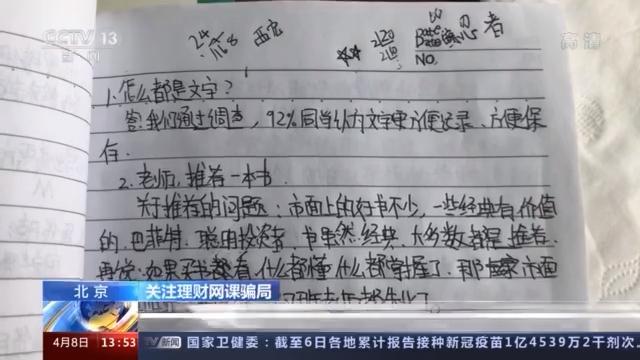 CCTV 13
新闻
高清
24
168
西宏
220
210
忍者
NO.
1、怎么都是文字？
答：我们通过调查，92%同学认为文字更方便记录、方便保
存。
2、老师，推荐一本书
关于推荐的问题：市面上的好书不少，一些经典有价值
的，巴菲特，聪明投资者，书虽然经典，大多数都是推荐
再说，如果买书都看，什么都懂什么都掌握了，那
市面
北京
关注理财网课骗局
4月8日 13:53
新闻
国家卫健委：截至6日各地累计报告接种新冠疫苗1亿4539万2千剂次